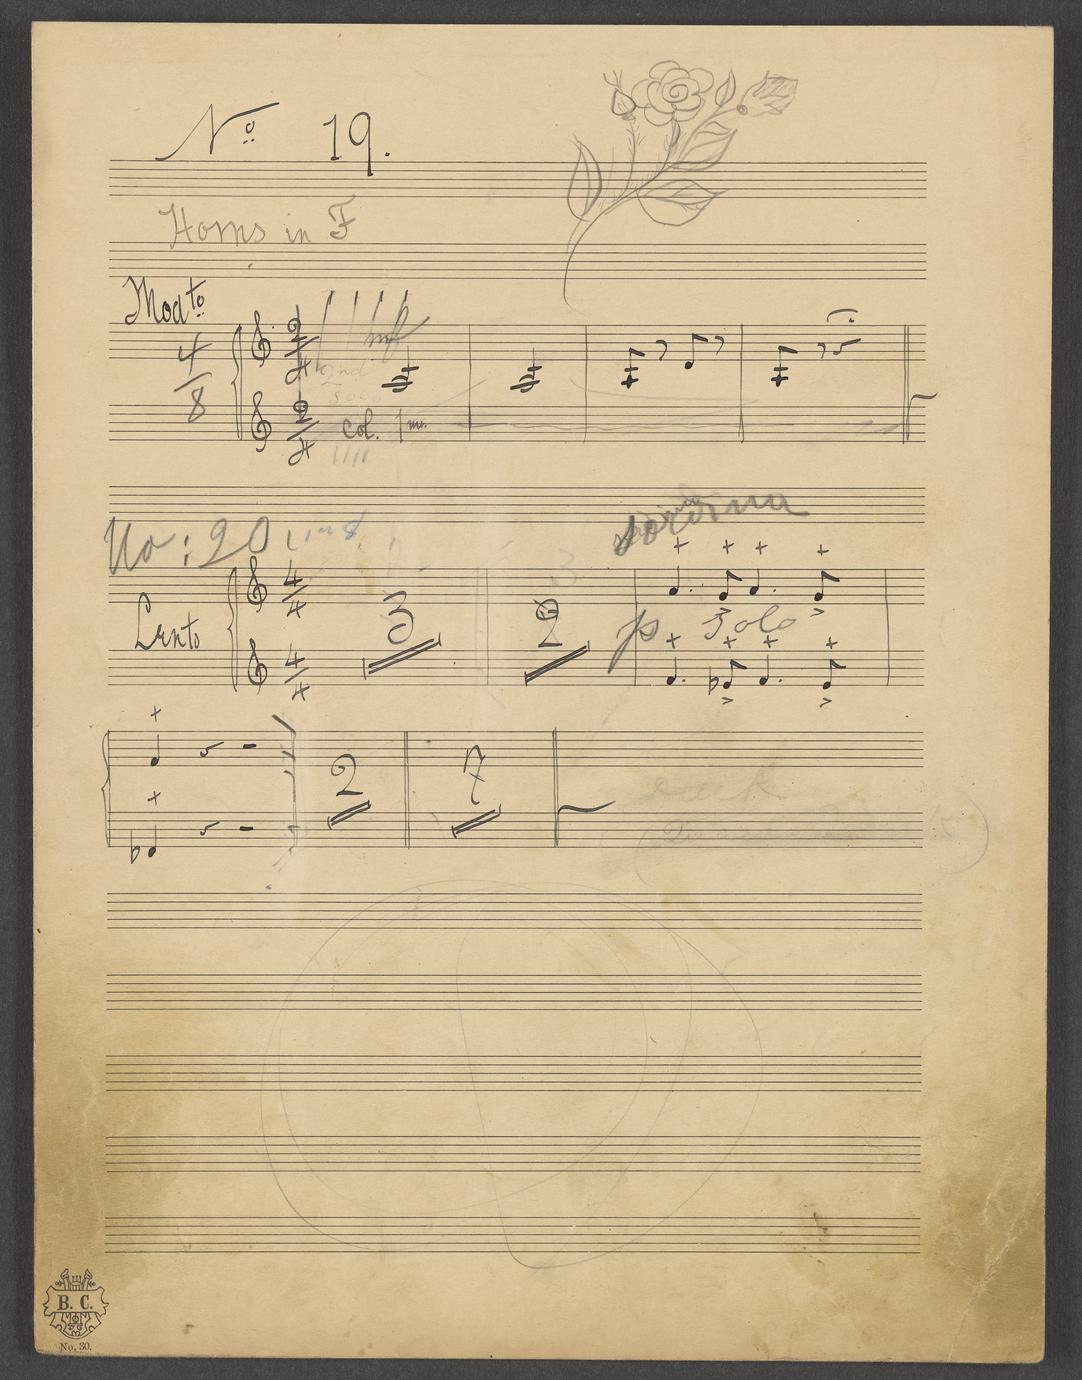 No 19.
Horns in F
Modto
4/8
2/4 mf
2nd
solo
2/4 Col. 1mo.
No: 20
sordina
Lento
4/4 3 2
p Solo
4/4
2 7
B. C.
No. 30.